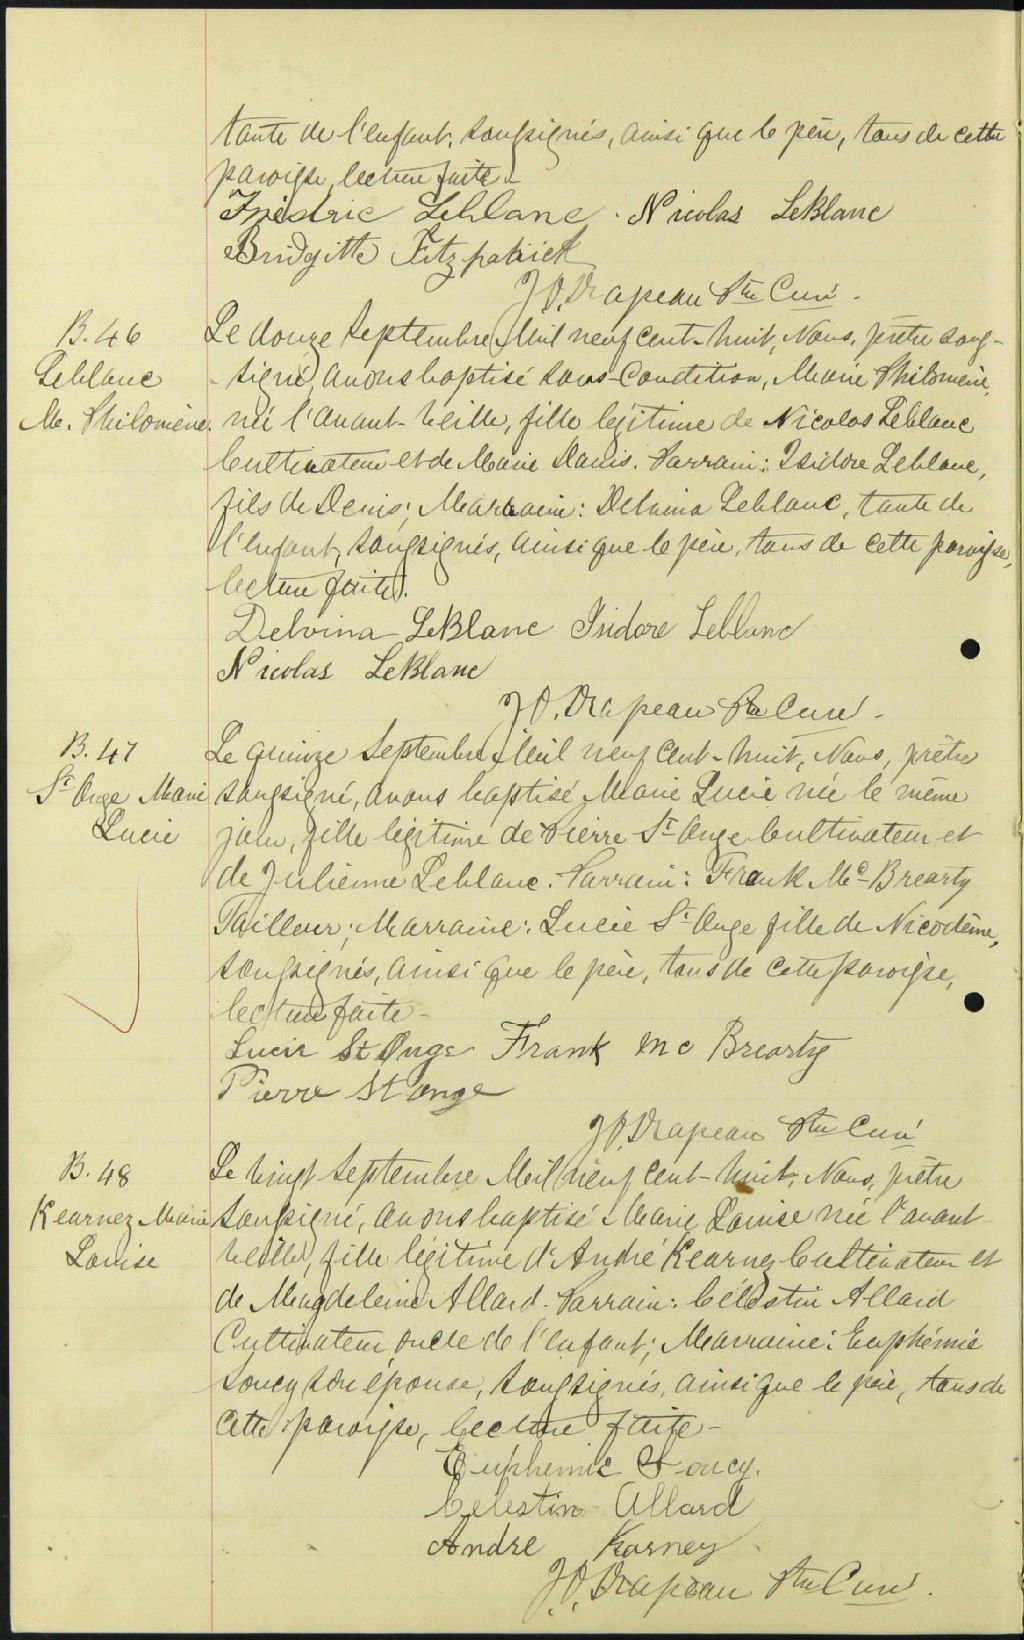 tante de l'enfant, soussignés, ainsi que le père, tous de cette
paroisse, lecture faite.
Frédric Leblanc. Nicolas LeBlanc
Bridgitte Fitzpatrick
J. O. Drapeau Ptre Curé.
B. 46
Leblanc
M. Philomène.
Le douze Septembre Mil neuf cent-huit, Nous, prêtre sous-
signé, avons baptisé sous-Condition, Marie Philomène,
née l'avant-veille, fille légitime de Nicolas Leblanc
Cultivateur et de Marie Danis. Parrain: Isidore Leblanc,
fils de Denis; Marraine: Delvina Leblanc, tante de
l'enfant, soussignés, ainsi que le père, tous de cette paroisse,
lecture faite.
Delvina LeBlanc Isidore Leblanc
Nicolas LeBlanc
J. O. Drapeau Ptre Curé.
B. 47
St Onge Marie
Lucie
Le quinze Septembre Mil neuf cent-huit, Nous, prêtre
soussigné, avons baptisé Marie Lucie née le même
jour, fille légitime de Pierre St Onge Cultivateur et
de Julienne Leblanc. Parrain: Frank Mc Brearty
Tailleur; Marraine: Lucie St Onge fille de Nicodème,
soussignés, ainsi que le père, tous de cette paroisse,
lecture faite-
Lucie St Onge Frank Mc Brearty
Pierre St onge
J. O. Drapeau Ptre Curé
B. 48
Kearnez Marie
Louise
Le vingt Septembre Mil neuf cent-huit, Nous, prêtre
soussigné, avons baptisé Marie Louise née l'avant
veille, fille légitime d'André Kearnez Cultivateur et
de Magdeleine Allard. Parrain: Célestin Allard
Cultivateur oncle de l'enfant; Marraine: Euphémie
Soucy son épouse, soussignés, ainsi que le père, tous de
cette paroisse, lecture faite-
Euphemie Soucy.
Celestin Allard
Andre Karney
J. O. Drapeau Ptre Curé.